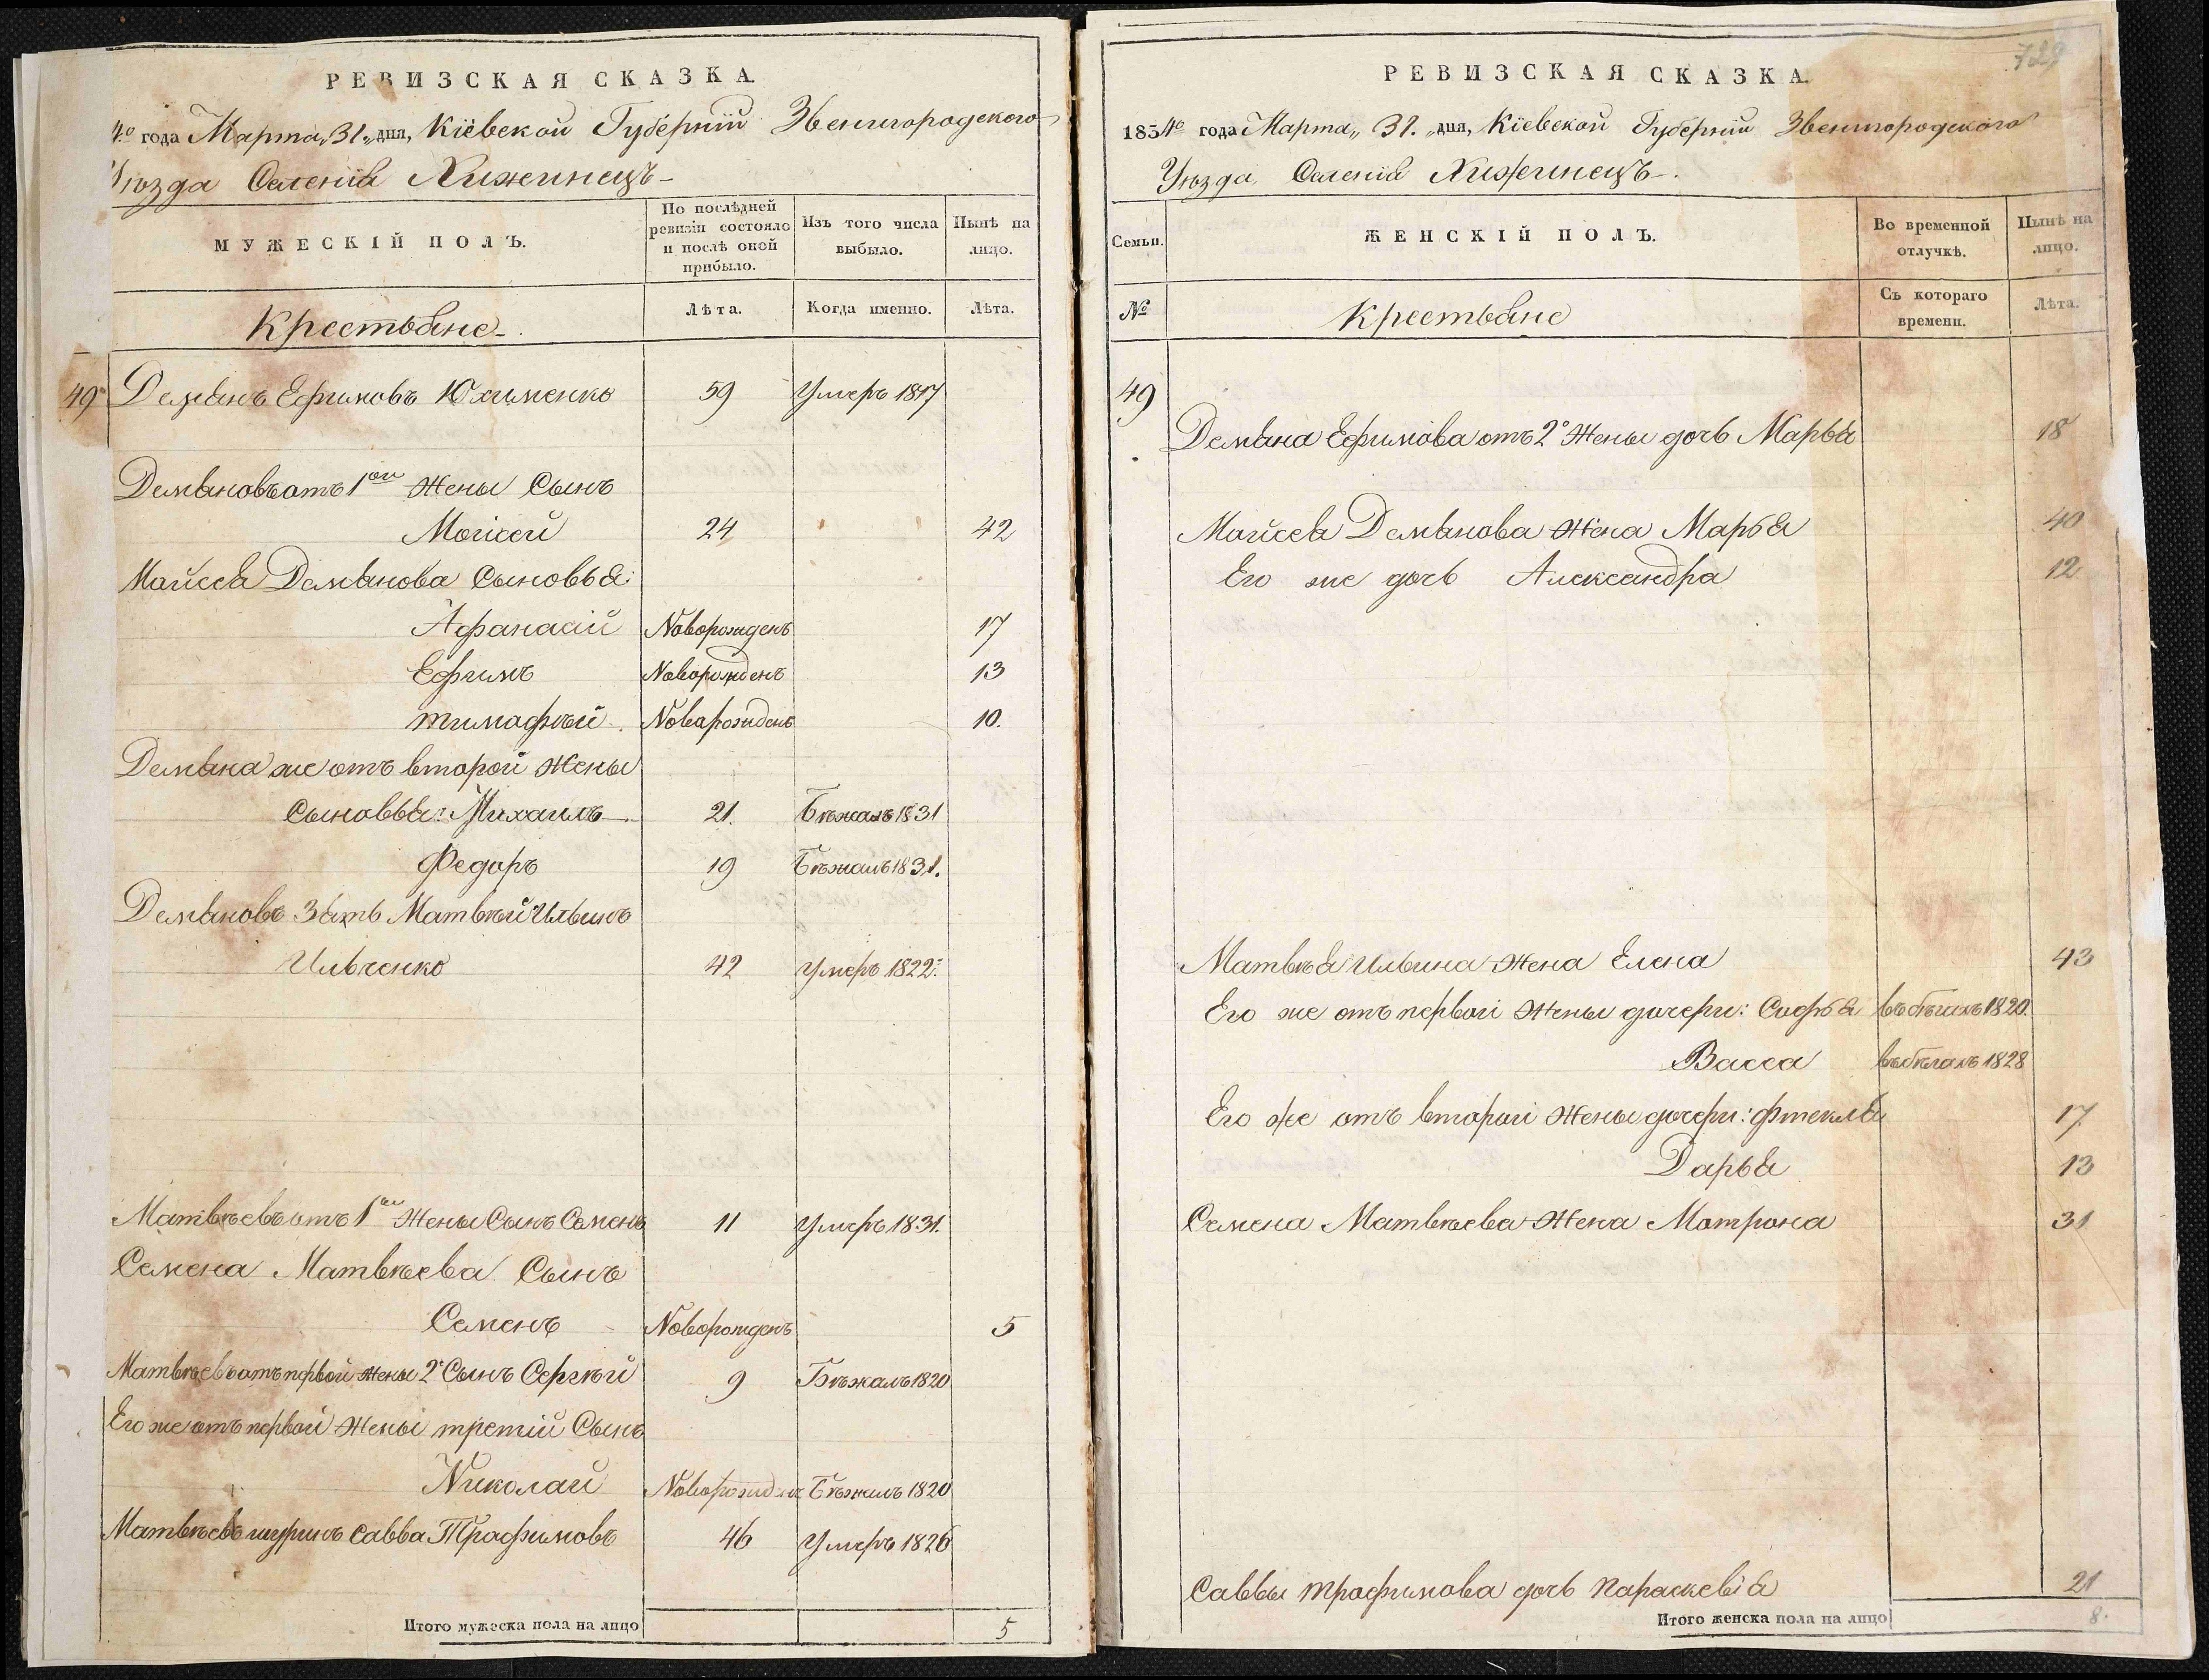 РЕВИЗСКАЯ СКАЗКА.
4го года Марта „31„ дня, Кіевской Губерніи Звенигородского
Уѣзда Селенія Хижинецъ
МУЖЕСКІЙ ПОЛЪ.
По послѣдней ревизіи состояло и послѣ оной прибыло.
Изъ того числа выбыло.
Нынѣ на лицо.
Крестьяне
Лѣта.
Когда именно.
Лѣта.
49 Демянъ Ефимовъ Юхименко 59 Умеръ 1817
Демяновъ отъ 1ой Жены Сынъ
Моисей 24 42
Мойсея Демянова Сыновья:
Афанасій Новорожденъ 17
Ефимъ Новорожденъ 13
Тимофѣй Новорожденъ 10.
Демяна же отъ второй Жены
Сыновья: Михаилъ 21. Бѣжалъ 1831
Федоръ 19 Бѣжалъ 1831.
Демяновъ Зять Матвѣй Ильинъ
Ильченко 42 Умеръ 1822.
Матвѣевъ отъ 1ой Жены Сынъ Семенъ 11 Умеръ 1831.
Семена Матвѣева Сынъ
Семенъ Новорожденъ 5
Матвѣевъ отъ первой жены 2й Сынъ Сергѣй 9 Бѣжалъ 1820
Его же отъ первой Жены третій Сынъ
Николай Новорожденъ Бѣжалъ 1820
Матвѣевъ шуринъ Савва Трофимовъ 46 Умеръ 1826
Итого мужеска пола на лицо 5
729
РЕВИЗСКАЯ СКАЗКА.
1834го года Марта „31„ дня, Кіевской Губерніи Звенигородского
Уѣзда Селенія Хижинецъ.
Семьи.
ЖЕНСКІЙ ПОЛЪ.
Во временной отлучкѣ.
Нынѣ на лицо.
№
Крестьяне
Съ котораго времени.
Лѣта.
49
Демяна Ефимова отъ 2й Жены дочь Марья 18
Мойсея Демянова Жена Марья 40
Его же дочь Александра 12
Матвѣя Ильина Жена Елена 43
Его же отъ первой Жены дочери: Софья въ бѣгахъ 1820
Васса въ бѣгахъ 1828
Его же отъ второй Жены дочери: Фтекля 17
Дарья 13
Семена Матвѣева Жена Мотрона 31
Саввы Трофимова дочь Параскевія 21
Итого женска пола на лицо 8.